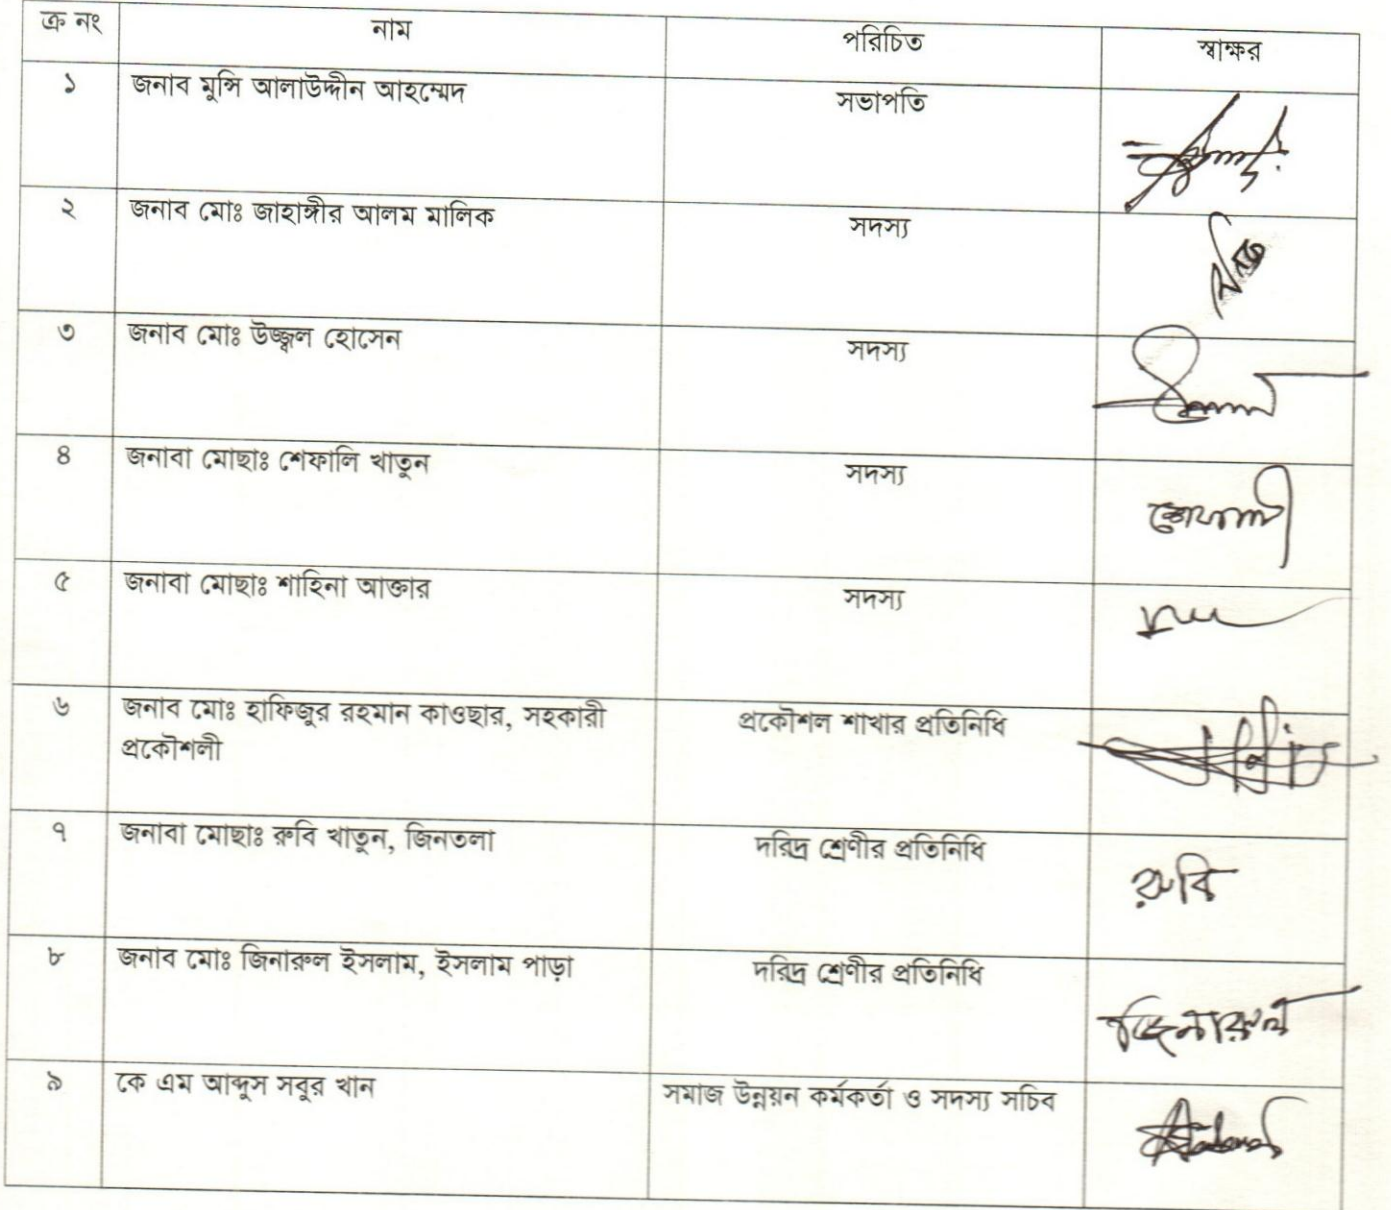 ক্র নং নাম পরিচিত স্বাক্ষর
১ জনাব মুন্সি আলাউদ্দীন আহম্মেদ সভাপতি
২ জনাব মোঃ জাহাঙ্গীর আলম মালিক সদস্য
৩ জনাব মোঃ উজ্জ্বল হোসেন সদস্য
৪ জনাবা মোছাঃ শেফালি খাতুন সদস্য
৫ জনাবা মোছাঃ শাহিনা আক্তার সদস্য
৬ জনাব মোঃ হাফিজুর রহমান কাওছার, সহকারী প্রকৌশল শাখার প্রতিনিধি
প্রকৌশলী
৭ জনাবা মোছাঃ রুবি খাতুন, জিনতলা দরিদ্র শ্রেণীর প্রতিনিধি
রুবি
৮ জনাব মোঃ জিনারুল ইসলাম, ইসলাম পাড়া দরিদ্র শ্রেণীর প্রতিনিধি
জিনারুল
৯ কে এম আব্দুস সবুর খান সমাজ উন্নয়ন কর্মকর্তা ও সদস্য সচিব